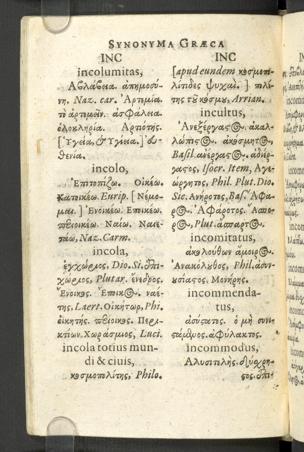 SYNONYMA GRÆCA
INC
incolumitas,
Ἀβλάβεια. ἀπημοσύ-
νη. Naz. car. Ἀρτιμία.
τὸ ἀρτιμεῖν. ἀσφάλεια.
ὁλοκληρία. Ἀρτιότης.
[Ὑγεία, & Ὑγίεια.] εὐ-
θενία.
incolo,
Ἐπιπολίζω. Οἰκέω.
Κατοικέω. Eurip. [Νέμο-
μαι.] Ἐνοικέω. Ἐποικέω.
περιοικέω. Ναίω. Ναιε-
τάω, Naz. Carm.
incola,
ἐγχώριος, Dio. Si. ἐπι-
χώριος, Plutar. ἔνδημος.
Ἔνοικος. Ἔποικος, ναέ-
της. Laert. Οἰκήτωρ, Phi.
οἰκητής. πάροικος. Περι-
κτίων. Χωράσμιος, Luci.
incola totius mun-
di & ciuis,
κοσμοπολίτης, Philo.
INC
[apud eundem κοσμοπο-
λίτιδες ψυχαί.] πολί-
της τοῦ κόσμου, Arrian.
incultus,
Ἀνεξέργαστος. ἀκαλ-
λώπιστος. ἀκόσμητος,
Basil. ἀνέργαστος. ἀδιέρ-
γαστος, Isocr. Item, Ἀγε-
ώργητος, Phil. Plut. Dio.
Sic. Ἀνήροτος, Bas. Ἄφα-
ρος. Ἀφάροτος. Ἄσπο-
ρος, Plut. ἄσπαρτος.
incomitatus,
ἀκολούθων ἄμοιρος.
Ἀνακόλουθος, Phil. ἀσυν-
ουσίαστος. Μονήρης.
incommenda-
tus,
ἀσύστατος. ὁ μὴ συνι-
στάμενος. ἀφύλακτος.
incommodus,
Ἀλυσιτελής. δύσχρη-
στος. ἐπι-